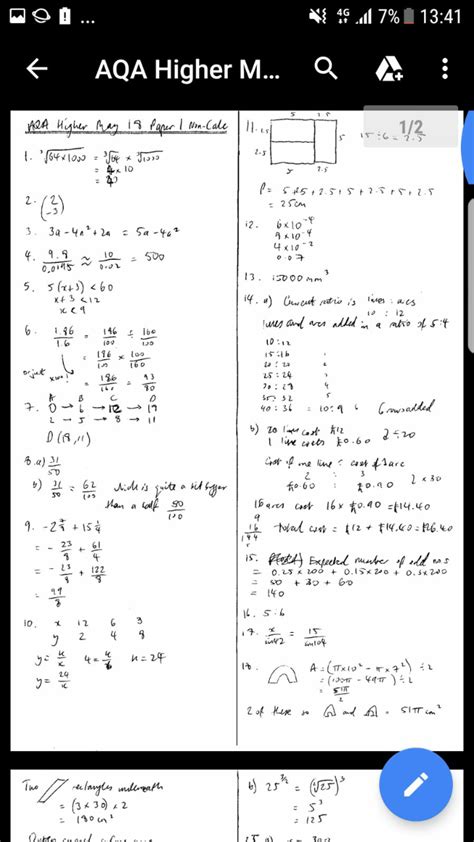 4G 7% 13:41
AQA Higher M...
1/2
AQA Higher May 18 Paper 1 Non-Calc
1. ³√64×1000 = ³√64 × ³√1000
= 4 × 10
= 40
2. (2
-3)
3. 3a - 4a² + 2a = 5a - 4a²
4. 9.8 / 0.0195 ≈ 10 / 0.02 = 500
5. 5(x+3) < 60
x+3 < 12
x < 9
6. 1.86 / 1.6 = 186/100 ÷ 160/100
= 186/100 × 100/160
= 186/160 = 93/80
7. A B C D
0 → 6 → 12 → 17
2 → 5 → 8 → 11
D (18, 11)
8. a) 31/50
b) 31/50 = 62/100 which is quite a bit bigger
than a half 50/100
9. -2 7/8 + 15 1/4
= - 23/8 + 61/4
= - 23/8 + 122/8
= 99/8
10. x 12 6 3
y 2 4 8
y = k/x 4 = k/6 k = 24
y = 24/x
11. 5 2.5
2.5 5 15 ÷ 6 = 2.5
2.5
5 2.5
P = 5 + 5 + 2.5 + 5 + 2.5 + 5
= 25cm
12. 6×10⁻⁴
9×10⁻⁴
4×10⁻²
0.07
13. 15000 mm³
14. a) Current ratio is lines : arcs
10 : 12
lines and arcs added in a ratio of 5:4
10:12
15:16
20:20
25:24
30:28
35:32
40:36 = 10:9
b) 20 lines cost £12
1 line costs £0.60
Cost of one line : cost of 1 arc
2 : 3
£0.60 : £0.90
16 arcs cost 16 × £0.90 = £14.40
total cost = £12 + £14.40 = £26.40
15. Expected number of odd nos
= 0.25×200 + 0.15×200 + 0.3×200
= 50 + 30 + 60
= 140
16. 5:6
17. x/sin42 = 15/sin104
18. A = (π×10² - π×7²) ÷ 2
= (100π - 49π) ÷ 2
= 51π/2
2 of these so and = 51π cm²
Two rectangles underneath
= (3 × 30) × 2
= 180cm²
b) 25^3/2 = (√25)³
= 5³
= 125